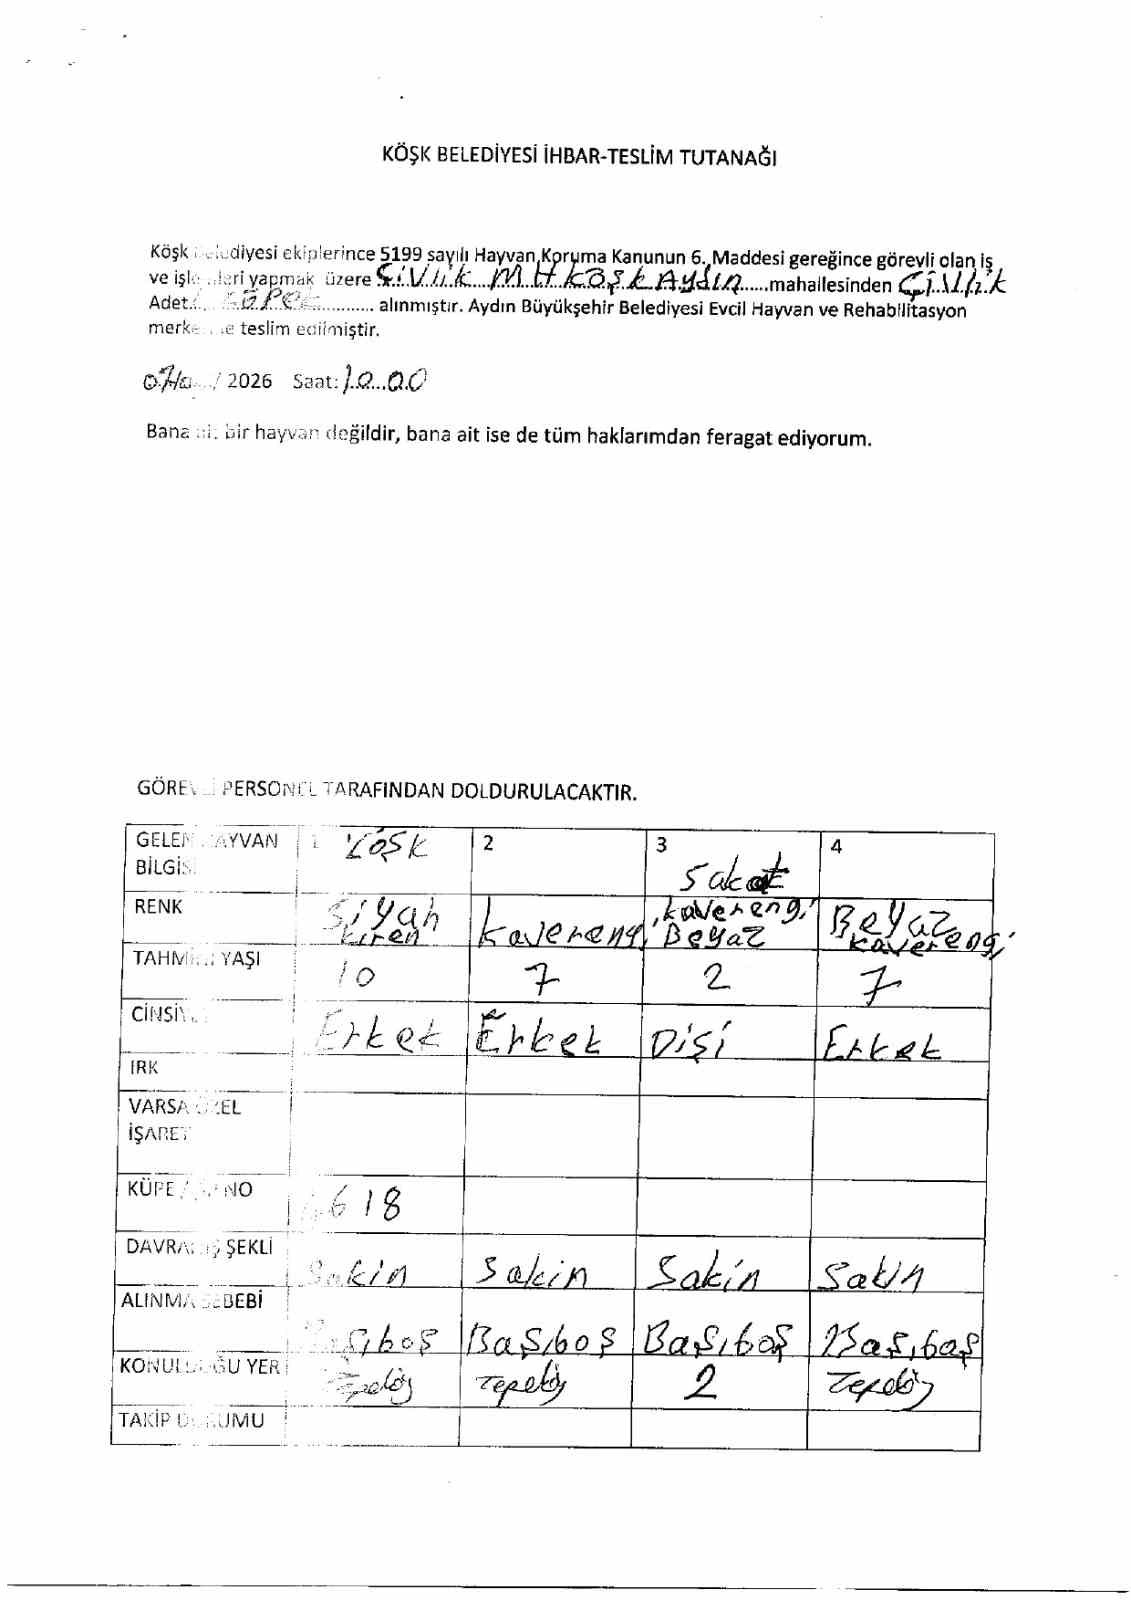 KÖŞK BELEDİYESİ İHBAR-TESLİM TUTANAĞI
Köşk Belediyesi ekiplerince 5199 sayılı Hayvan Koruma Kanunun 6. Maddesi gereğince görevli olan iş
ve işlemleri yapmak üzere Çivlik MH Köşk Aydın.....mahallesinden Çivlik
Adet ............ alınmıştır. Aydın Büyükşehir Belediyesi Evcil Hayvan ve Rehabilitasyon
merkezine teslim edilmiştir.
/ 2026 Saat: 10.00
Bana ait bir hayvan değildir, bana ait ise de tüm haklarımdan feragat ediyorum.
GÖREVLİ PERSONEL TARAFINDAN DOLDURULACAKTIR.
GELEN HAYVAN BİLGİSİ 1 Köşk 2 3 Sakat 4
RENK Siyah kıren kaverengi kaverengi Beyaz Beyaz kaverengi
TAHMİNİ YAŞI 10 7 2 7
CİNSİYET Erkek Erkek Dişi Erkek
IRK
VARSA ÖZEL İŞARET
KÜPE / NO 618
DAVRANIŞ ŞEKLİ Sakin Sakin Sakin Sakin
ALINMA SEBEBİ Başıboş Başıboş Başıboş Başıboş
KONULDUĞU YER Tepeköy Tepeköy 2 Tepeköy
TAKİP DURUMU